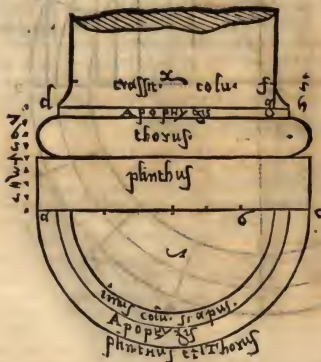 crassit. x colu.
d f
Apophygis g
thorus
plinthus
a
imus colu. scapus.
Apophygis
plinthus et thorus